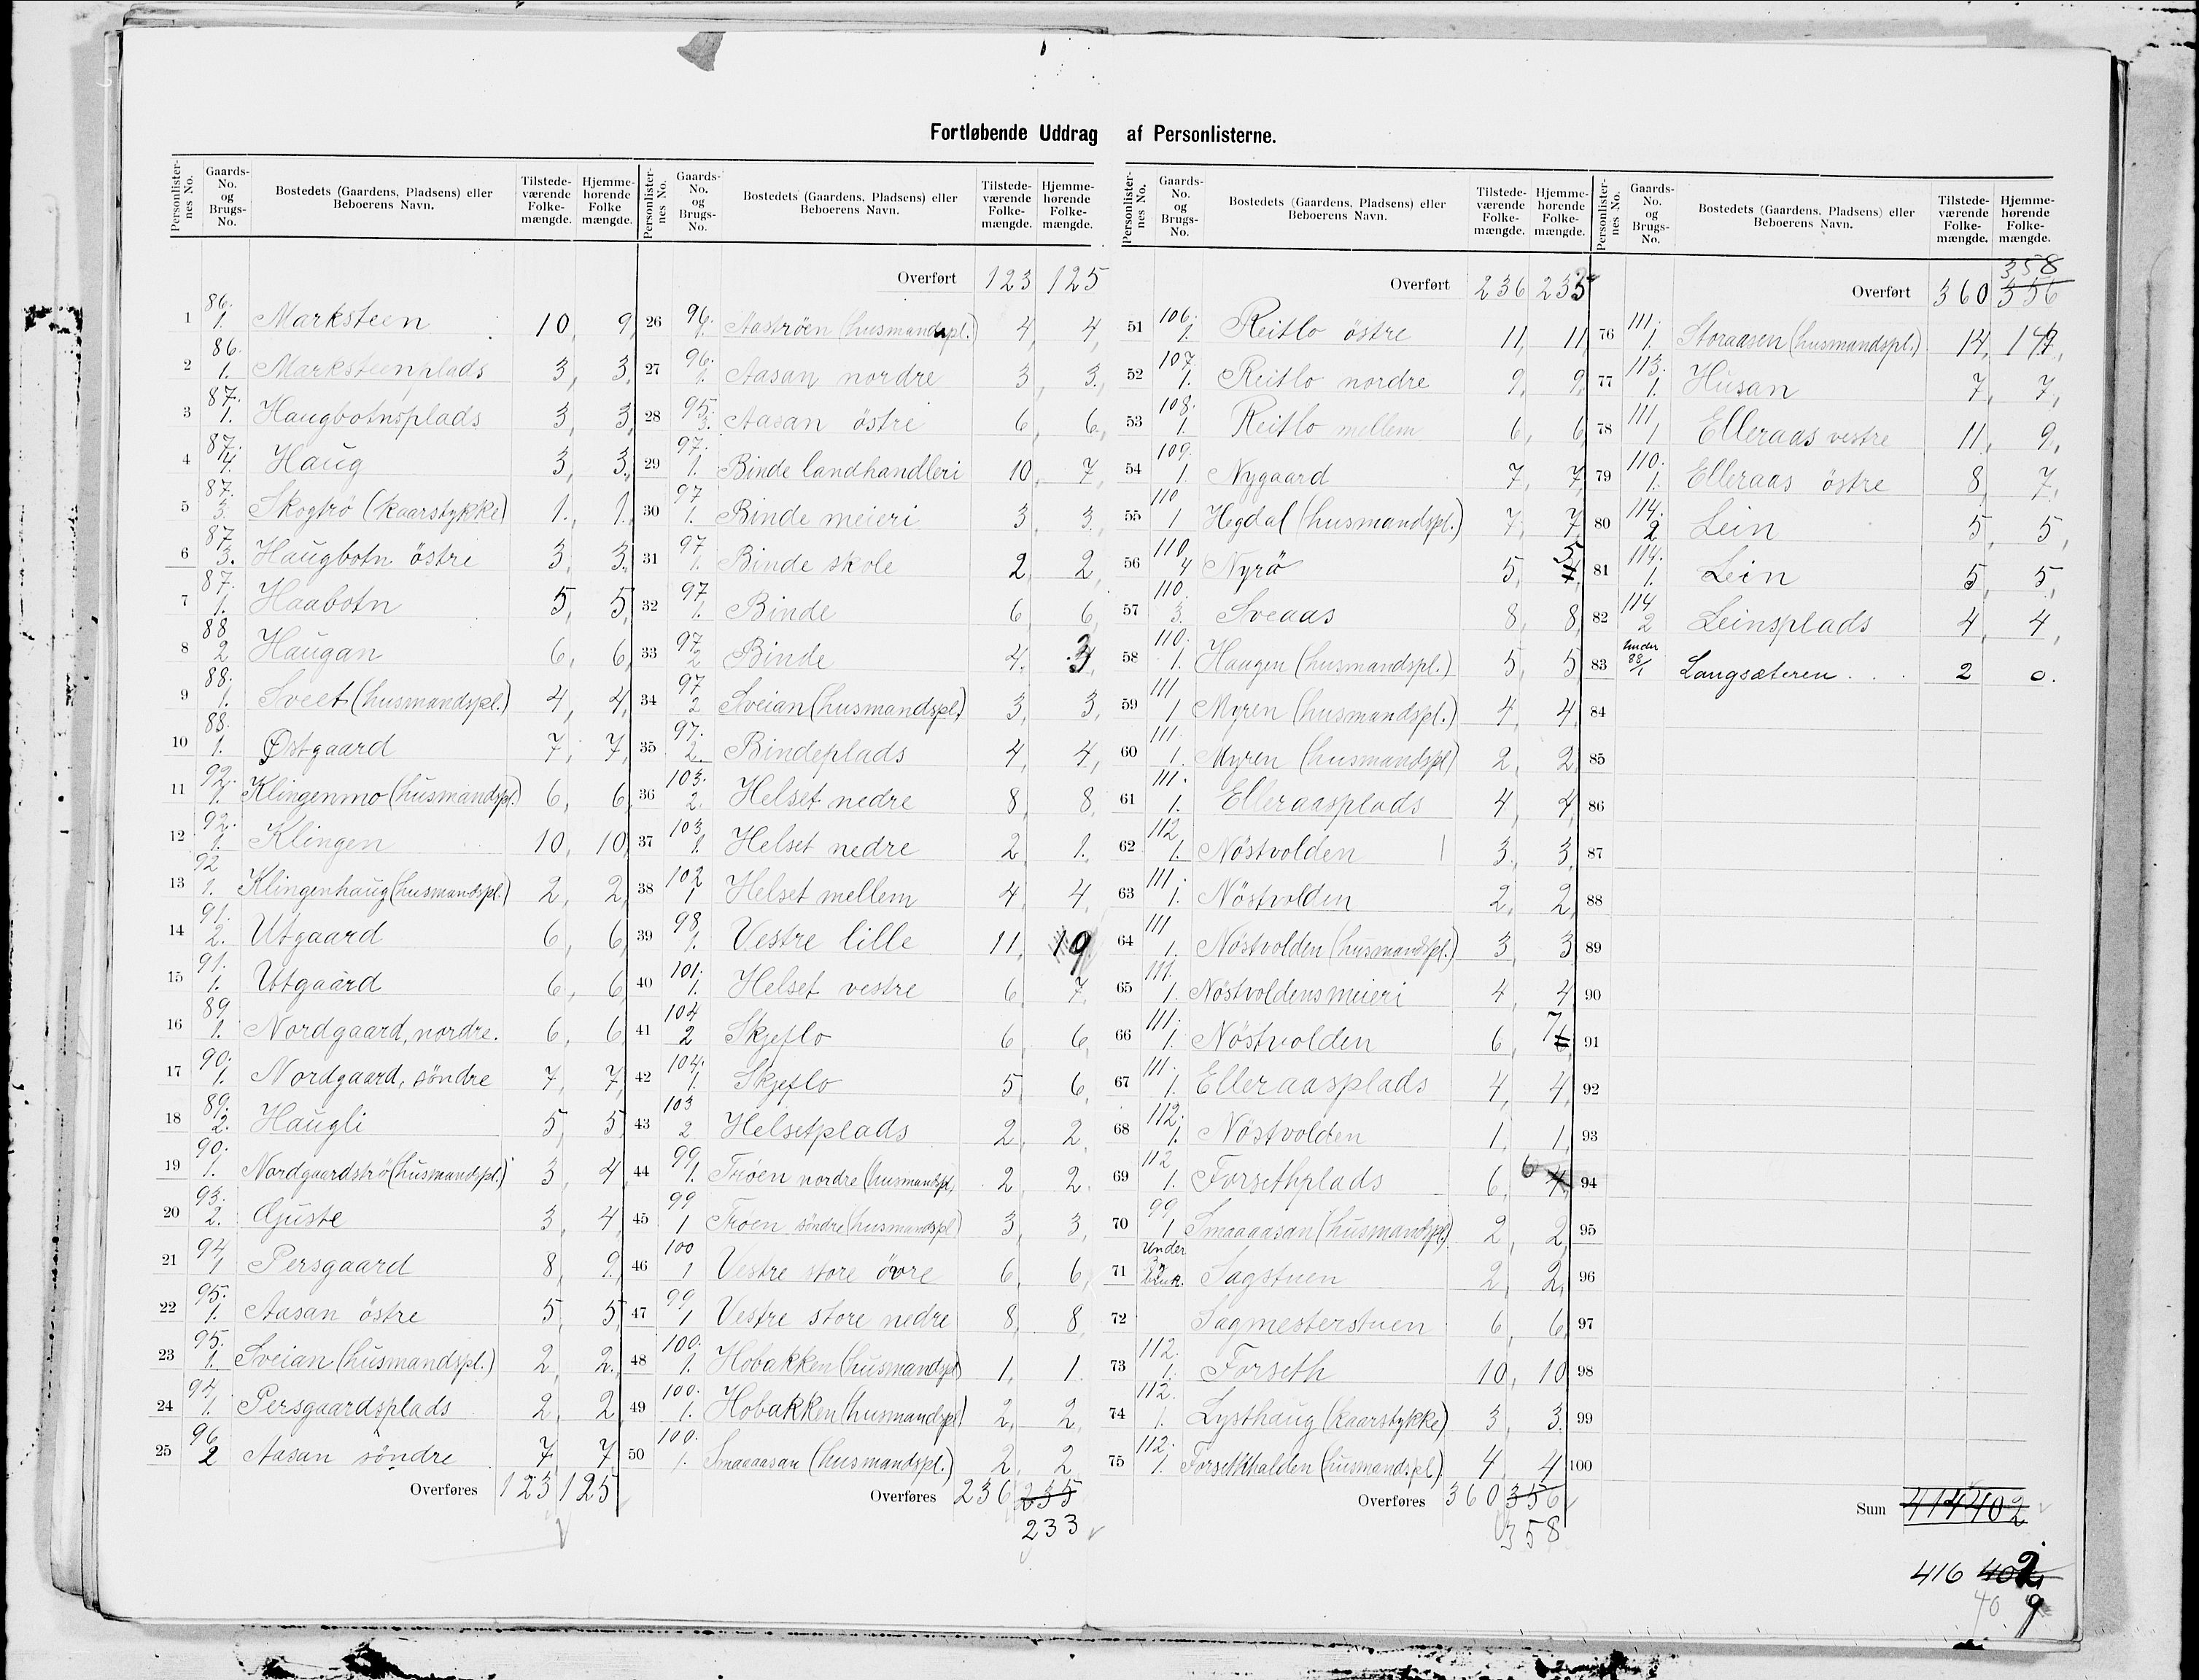 Fortløbende Uddrag af Personlisterne.
Personlisternes No. Gaards-No. og Brugs-No. Bostedets (Gaardens, Pladsens) eller Beboerens Navn. Tilstedeværende Folkemængde. Hjemmehørende Folkemængde.
1 86. 1. Marksteen 10, 9,
2 86. 1. Marksteenplads 3, 3,
3 87. 1. Haugbotnsplads 3, 3,
4 87. 4. Haug 3, 3,
5 87. 3 Skogtrø (kaarstykke) 1., 1.
6 87. 3. Haugbotn östre 3, 3,
7 87. 1. Haabotn 5, 5,
8 88 2 Haugan 6, 6,
9 88. 1. Sveet (husmandspl.) 4, 4,
10 88. 1. Østgaard 7, 7,
11 92. 1. Klingenmo (husmandspl.) 6, 6,
12 92. 1. Klingen 10, 10,
13 92 1. Klingenhaug (husmandspl.) 2, 2,
14 91. 2. Utgaard 6, 6,
15 91. 1. Utgaard 6, 6
16 89 1. Nordgaard, nordre. 6, 6
17 90. 1. Nordgaard, söndre 7, 7,
18 89. 2. Haugli 5, 5
19 90. 1. Nordgaardströ (husmandspl.) 3, 4,
20 93. 2. Gjuste 3, 4,
21 94 1 Persgaard 8, 9,
22 95. 1. Aasan östre 5, 5
23 95. 1. Sveian (husmandspl.) 2, 2.
24 94 1. Persgaardsplads 2, 2
25 96 2 Aasan söndre 7, 7,
Overføres 123 125
Overført 123 125
26 96. 1. Aaströen (husmandspl.) 4, 4,
27 96. 1. Aasan nordre 3, 3,
28 95. 3. Aasan östre 6, 6,
29 97. 1. Binde landhandleri 10, 7,
30 97 1. Binde meieri 3, 3.
31 97 1. Binde skole 2, 2,
32 97 1. Binde 6 6,
33 97 2 Binde 4, 3
34 97 2 Sveian (husmandspl.) 3, 3,
35 97. 2. Bindeplads 4, 4,
36 103. 2. Helset nedre 8, 8,
37 103 1. Helset nedre 2, 1.
38 102 1 Helset mellem 4, 4,
39 98 1. Vestre lille 11, 9
40 101. 1. Helset vestre 6, 7,
41 104 2 Skjeflo 6, 6,
42 104. 1. Skjeflo 5, 6,
43 103 2 Helsetplads 2, 2,
44 99 1. Trøen nordre (husmandspl. 2, 2.
45 99 1 Trøen söndre (husmandspl) 3, 3,
46 100 1 Vestre store övre 6, 6,
47 99 1 Vestre store nedre 8, 8,
48 100. 1. Hobakken (husmandspl) 1, 1.
49 100. 1. Hobakken (husmandspl) 2, 2,
50 100. 1. Smaaaasan (husmandspl.) 2, 2
Overføres 236 235
233
Overført 236 235
51 106. 1. Reitlo östre 11, 11,
52 107. 1. Reitlo nordre 9, 9,
53 108. 1. Reitlo mellem 6, 6,
54 109. 1. Nygaard 7, 7,
55 110 1 Hegdal (husmandspl.) 7, 7,
56 110 4 Nyrö 5, 4 5
57 110. 3. Sveaas 8, 8,
58 110. 1. Haugen (husmandspl.) 5, 5
59 111 1 Myren (husmandspl.) 4, 4,
60 111. 1. Myren (husmandspl) 2, 2,
61 111. 1. Elleraasplads 4, 4,
62 112 1. Nöstvolden 3, 3,
63 111. 1. Nöstvolden 2, 2,
64 111 1. Nöstvolden (husmandspl.) 3, 3
65 111. 1. Nöstvoldens meieri 4, 4
66 111. 1. Nöstvolden 6, 6 7
67 111. 1. Elleraasplads 4, 4,
68 112. 1. Nöstvolden 1, 1,
69 112 1. Forsethplads 6, 4 6
70 99 1 Smaaaasan (husmandspl.) 2, 2,
71 Under Sagstuen 2, 2,
72 Sagmesterstuen 6, 6,
73 112. 1. Forseth 10, 10
74 112. 1. Lysthaug (kaarstykke) 3, 3.
75 112. 1. Forsethhalden (husmandspl.) 4, 4
Overføres 360 356
358
Overført 360 356 358
76 111. 1. Storaasen (husmandspl.) 14, 14,
77 113. 1. Husan 7, 7,
78 111 1 Elleraas vestre 11, 9,
79 110. 1. Elleraas östre 8, 7,
80 114. 2 Lein 5, 5,
81 114. 1. Lein 5, 5,
82 114 2 Leinsplads 4, 4,
83 under 88/1 Langsæteren . . . 2 0.
84
85
86
87
88
89
90
91
92
93
94
95
96
97
98
99
100
Sum 414 402
416 402
40 9